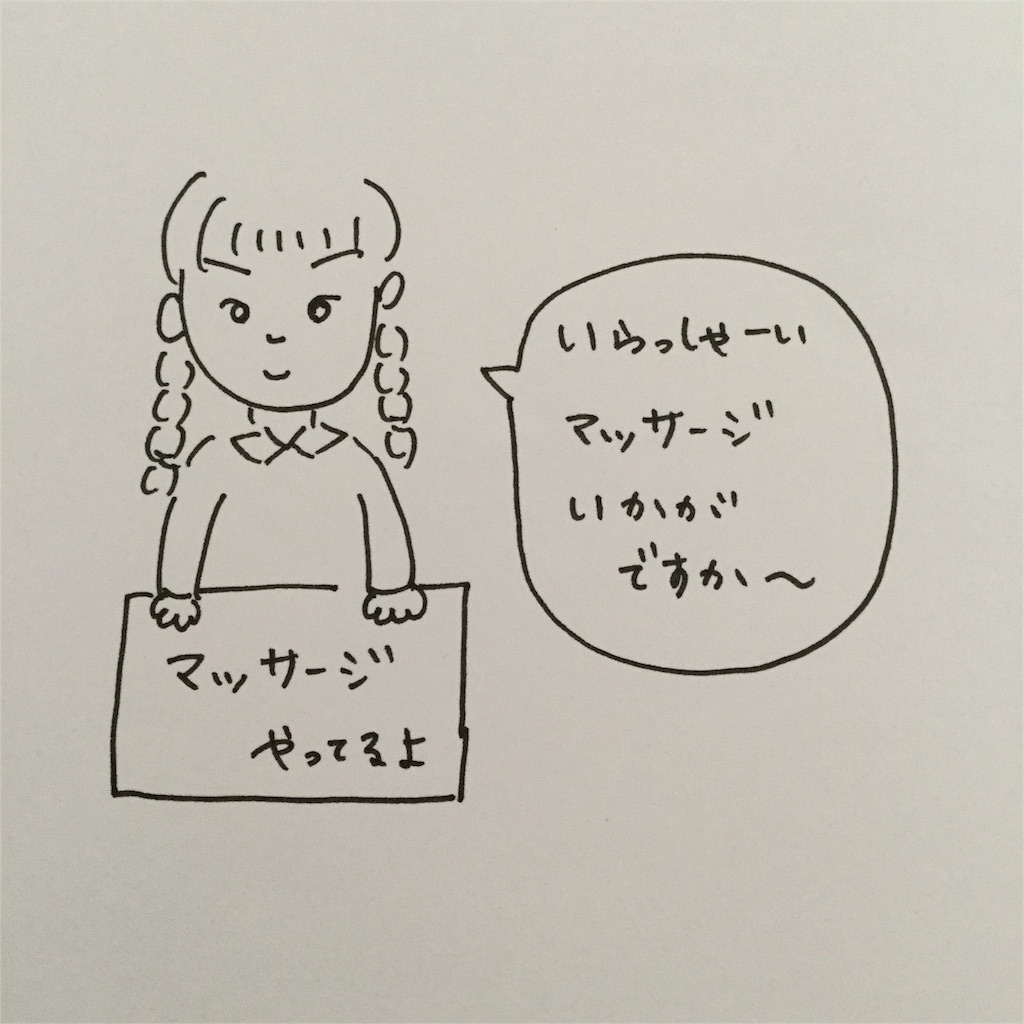 いらっしゃーい
マッサージ
いかが
ですか〜
マッサージ
やってるよ